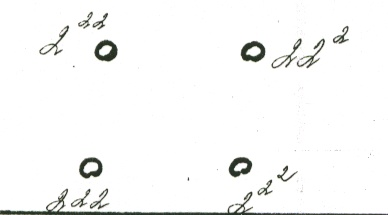 2²² 22²
222 2²²